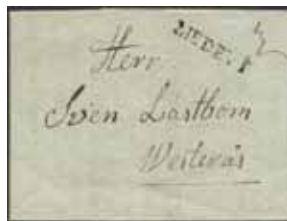 MEDEVI
Herr
Sven Lastbom
Westerås